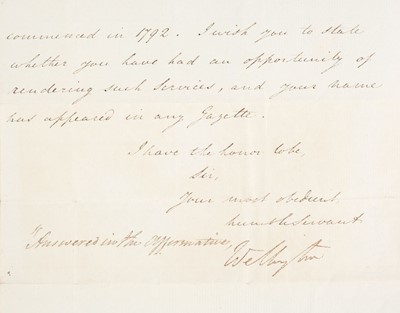 commenced in 1792. I wish you to state
whether you have had an opportunity of
rendering such Services, and your name
has appeared in any Gazette.
I have the honor to be,
Sir,
Your most obedient
humble Servant
"Answered in the Affirmative,
Wellington